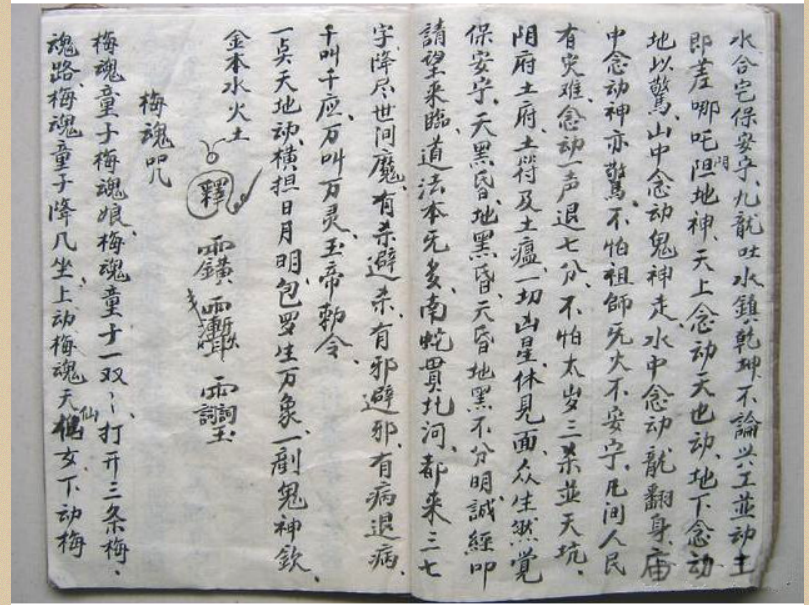 水合宅保安宁、九龍吐水鎮乾坤、不論兴工並动土
即差哪吒門阻地神、天上念动天也动、地下念动
地以驚、山中念动鬼神走、水中念动龍翻身、庙
中念动神亦驚、不怕祖師兂火不安宁、凡间人民
有灾难、念动一声退七分、不怕太岁三杀並天坑、
阴府土府、土符及土瘟、一切凶星休見面、众生然覚
保安宁、天黑昏、地黑昏、天昏地黑不分明、誠經叩
請望来臨、道法本兂多、南蛇貫北河、都来三七
字、降尽世间魔、有杀避杀、有邪避邪、有病退病、
千叫千应、万叫万灵、玉帝勅令、
一点天地动、横担日月明、包罗生万象、一劄鬼神欽、
金木水火土
釋
梅魂咒
梅魂童子梅魂娘、梅魂童子一双〻、打开三条梅、
魂路、梅魂童子降几坐、上动梅魂天仙女、下动梅